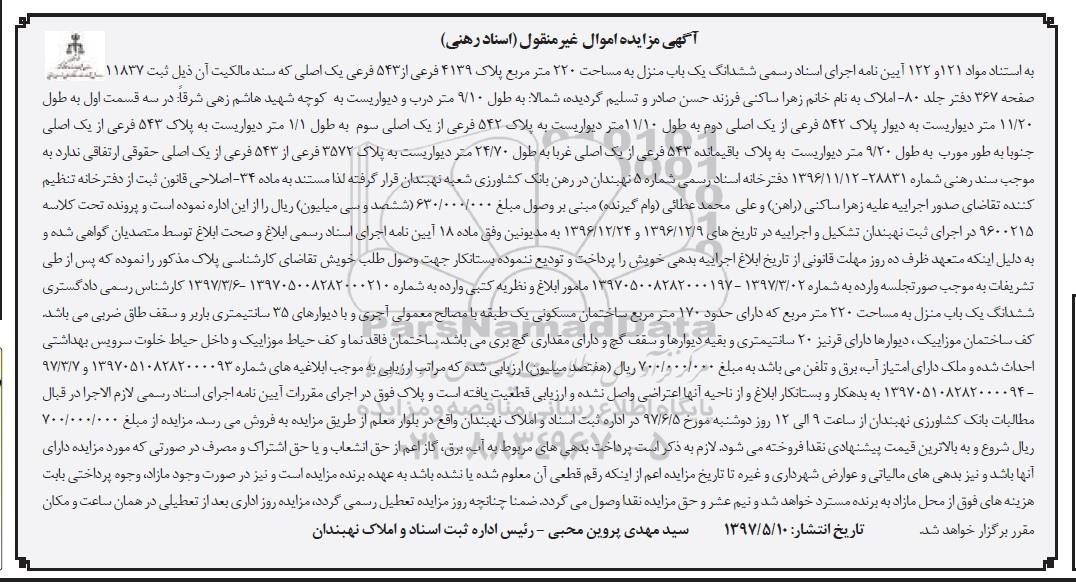 آگهی مزایده اموال غیرمنقول (اسناد رهنی)
به استناد مواد ۱۲۱و ۱۲۲ آیین نامه اجرای اسناد رسمی ششدانگ یک باب منزل به مساحت ۲۲۰ متر مربع پلاک ۴۱۳۹ فرعی از۵۴۳ فرعی یک اصلی که سند مالکیت آن ذیل ثبت ۱۱۸۳۷
صفحه ۳۶۷ دفتر جلد ۸۰- املاک به نام خانم زهرا ساکنی فرزند حسن صادر و تسلیم گردیده، شمالا: به طول ۹/۱۰ متر درب و دیواریست به کوچه شهید هاشم زهی شرقاً: در سه قسمت اول به طول
۱۱/۲۰ متر دیواریست به دیوار پلاک ۵۴۲ فرعی از یک اصلی دوم به طول ۱۱/۱۰متر دیواریست به پلاک ۵۴۲ فرعی از یک اصلی سوم به طول ۱/۱ متر دیواریست به پلاک ۵۴۳ فرعی از یک اصلی
جنوبا به طور مورب به طول ۹/۲۰ متر دیواریست به پلاک باقیمانده ۵۴۳ فرعی از یک اصلی غربا به طول ۲۴/۷۰ متر دیواریست به پلاک ۳۵۷۲ فرعی از ۵۴۳ فرعی از یک اصلی حقوقی ارتفاقی ندارد به
موجب سند رهنی شماره ۲۸۸۳۱-۱۳۹۶/۱۱/۱۲ دفترخانه اسناد رسمی شماره ۵ نهبندان در رهن بانک کشاورزی شعبه نهبندان قرار گرفته لذا مستند به ماده ۳۴-اصلاحی قانون ثبت از دفترخانه تنظیم
کننده تقاضای صدور اجراییه علیه زهرا ساکنی (راهن) و علی محمد عطائی (وام گیرنده) مبنی بر وصول مبلغ ۶۳۰/۰۰۰/۰۰۰ (ششصد و سی میلیون) ریال را از این اداره نموده است و پرونده تحت کلاسه
۹۶۰۰۲۱۵ در اجرای ثبت نهبندان تشکیل و اجراییه در تاریخ های ۱۳۹۶/۱۲/۹ و ۱۳۹۶/۱۲/۲۴ به مدیونین وفق ماده ۱۸ آیین نامه اجرای اسناد رسمی ابلاغ و صحت ابلاغ توسط متصدیان گواهی شده و
به دلیل اینکه متعهد ظرف ده روز مهلت قانونی از تاریخ ابلاغ اجراییه بدهی خویش را پرداخت و تودیع ننموده بستانکار جهت وصول طلب خویش تقاضای کارشناسی پلاک مذکور را نموده که پس از طی
تشریفات به موجب صورتجلسه وارده به شماره ۱۳۹۷/۳/۰۲ - ۱۳۹۷۰۵۰۰۸۲۸۲۰۰۰۱۹۷ مامور ابلاغ و نظریه کتبی وارده به شماره ۱۳۹۷۰۵۰۰۸۲۸۲۰۰۰۲۱۰ -۱۳۹۷/۳/۶ کارشناس رسمی دادگستری
ششدانگ یک باب منزل به مساحت ۲۲۰ متر مربع که دارای حدود ۱۷۰ متر مربع ساختمان مسکونی یک طبقه با مصالح معمولی آجری و با دیوارهای ۳۵ سانتیمتری باربر و سقف طاق ضربی می باشد.
کف ساختمان موزاییک ، دیوارها دارای قرنیز ۲۰ سانتیمتری و بقیه دیوارها و سقف گچ و دارای مقداری گچ بری می باشد. ساختمان فاقد نما و کف حیاط موزاییک و داخل حیاط خلوت سرویس بهداشتی
احداث شده و ملک دارای امتیاز آب، برق و تلفن می باشد به مبلغ ۷۰۰/۰۰۰/۰۰۰ ریال (هفتصد میلیون) ارزیابی شده که مراتب ارزیابی به موجب ابلاغیه های شماره ۱۳۹۷۰۵۱۰۸۲۸۲۰۰۰۰۹۳ و ۹۷/۳/۷
-۱۳۹۷۰۵۱۰۸۲۸۲۰۰۰۰۹۴ به بدهکار و بستانکار ابلاغ و از ناحیه آنها اعتراضی واصل نشده و ارزیابی قطعیت یافته است و پلاک فوق در اجرای مقررات آیین نامه اجرای اسناد رسمی لازم الاجرا در قبال
مطالبات بانک کشاورزی نهبندان از ساعت ۹ الی ۱۲ روز دوشنبه مورخ ۹۷/۶/۵ در اداره ثبت اسناد و املاک نهبندان واقع در بلوار معلم از طریق مزایده به فروش می رسد. مزایده از مبلغ ۷۰۰/۰۰۰/۰۰۰
ریال شروع و به بالاترین قیمت پیشنهادی نقدا فروخته می شود. لازم به ذکر است پرداخت بدهی های مربوط به آب، برق، گاز اعم از حق انشعاب و یا حق اشتراک و مصرف در صورتی که مورد مزایده دارای
آنها باشد و نیز بدهی های مالیاتی و عوارض شهرداری و غیره تا تاریخ مزایده اعم از اینکه رقم قطعی آن معلوم شده یا نشده باشد به عهده برنده مزایده است و نیز در صورت وجود مازاد، وجوه پرداختی بابت
هزینه های فوق از محل مازاد به برنده مسترد خواهد شد و نیم عشر و حق مزایده نقدا وصول می گردد. ضمنا چنانچه روز مزایده تعطیل رسمی گردد، مزایده روز اداری بعد از تعطیلی در همان ساعت و مکان
مقرر برگزار خواهد شد. تاریخ انتشار: ۱۳۹۷/۵/۱۰ سید مهدی پروین محبی – رئیس اداره ثبت اسناد و املاک نهبندان
ParsNamadData
پایگاه اطلاع رسانی مناقصه و مزایده
۰۲۱-۸۸۳۴۹۶۷۰-۵